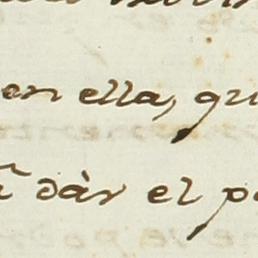 en ella, qu
dàr el p